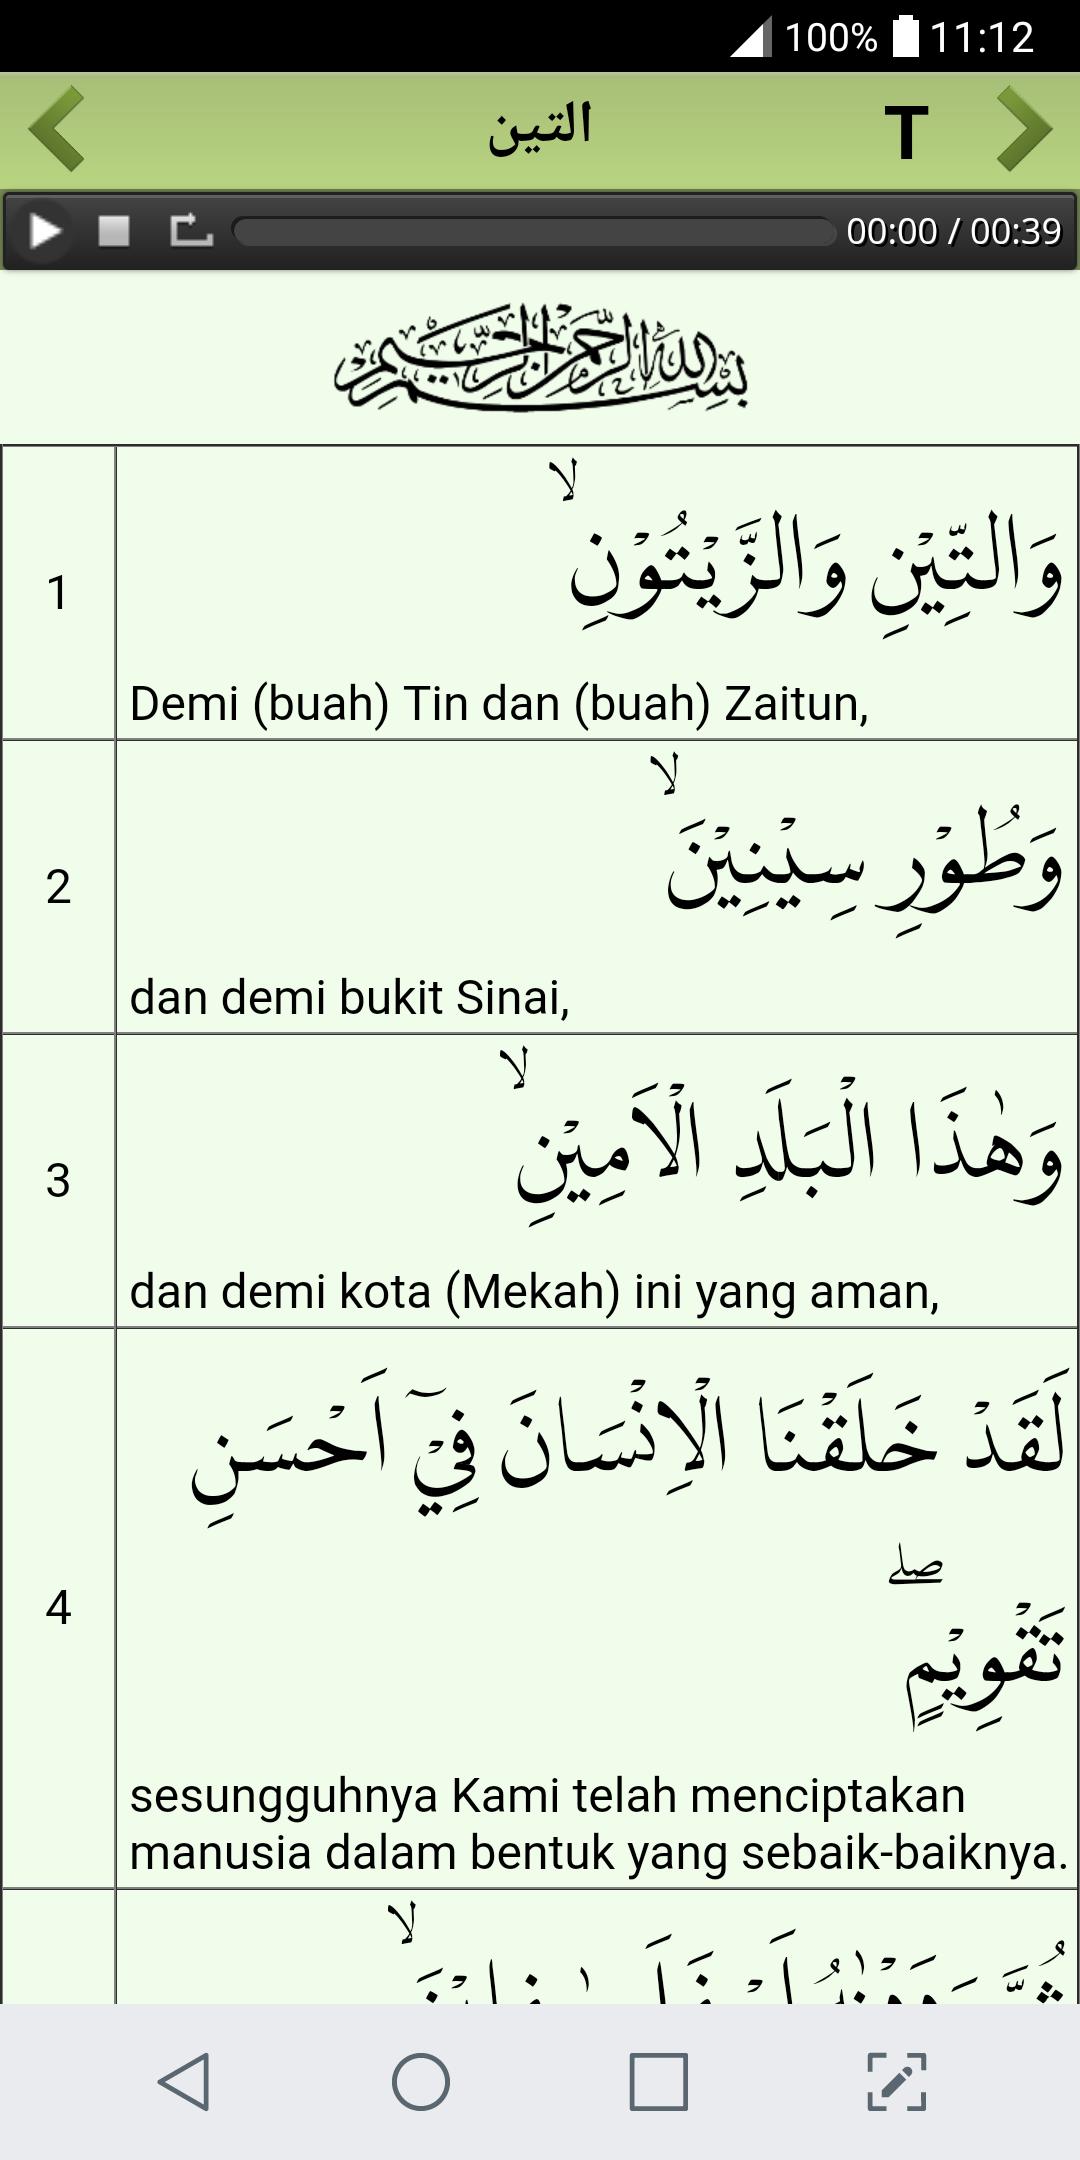 100% 11:12
التين T
00:00 / 00:39
بسم الله الرحمن الرحيم
1
وَالتِّيْنِ وَالزَّيْتُوْنِۙ
Demi (buah) Tin dan (buah) Zaitun,
2
وَطُوْرِ سِيْنِيْنَۙ
dan demi bukit Sinai,
3
وَهٰذَا الْبَلَدِ الْاَمِيْنِۙ
dan demi kota (Mekah) ini yang aman,
4
لَقَدْ خَلَقْنَا الْاِنْسَانَ فِيْٓ اَحْسَنِ
تَقْوِيْمٍۖ
sesungguhnya Kami telah menciptakan
manusia dalam bentuk yang sebaik-baiknya.